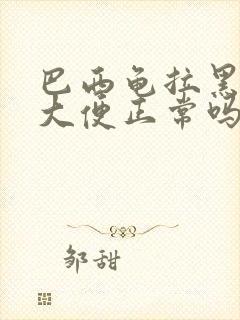 巴西龟拉黑
大便正常吗
邹甜